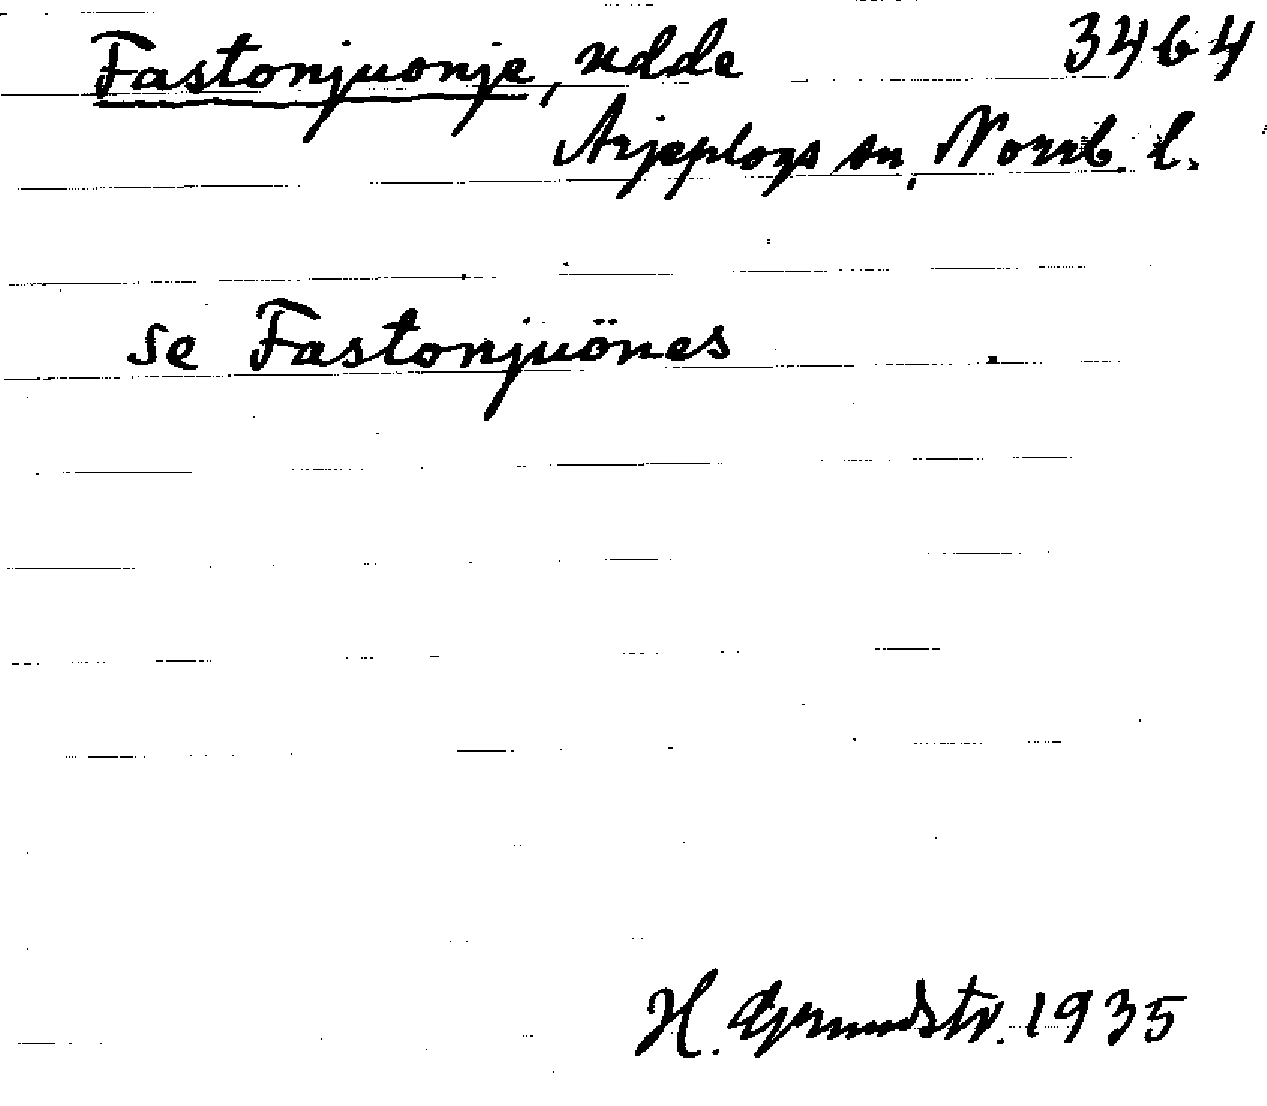 Fastonjuonje, udde 3464
Arjeplogs sn, Norrb. l.
se Fastonjuönes
H. Grundstr. 1935